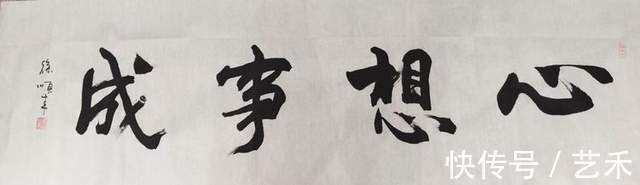 心想事成
徐順
快传号 / 艺禾